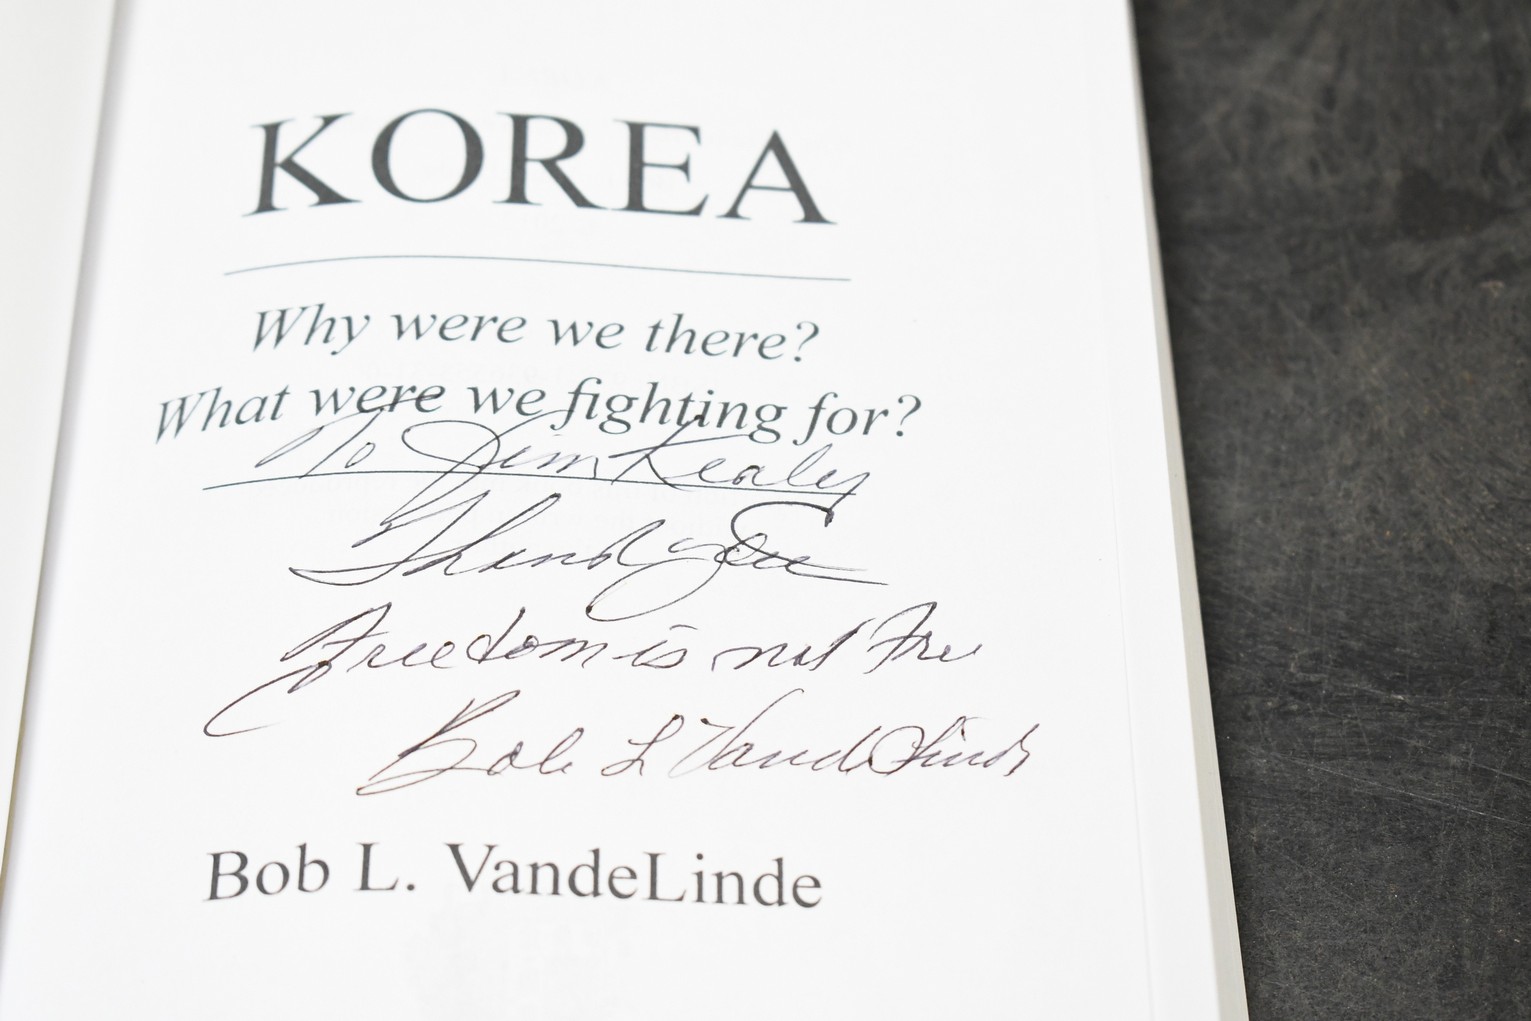 KOREA
Why were we there?
What were we fighting for?
To Jim Kealy
Thank you
Freedom is not Free
Bob L VandeLinde
Bob L. VandeLinde